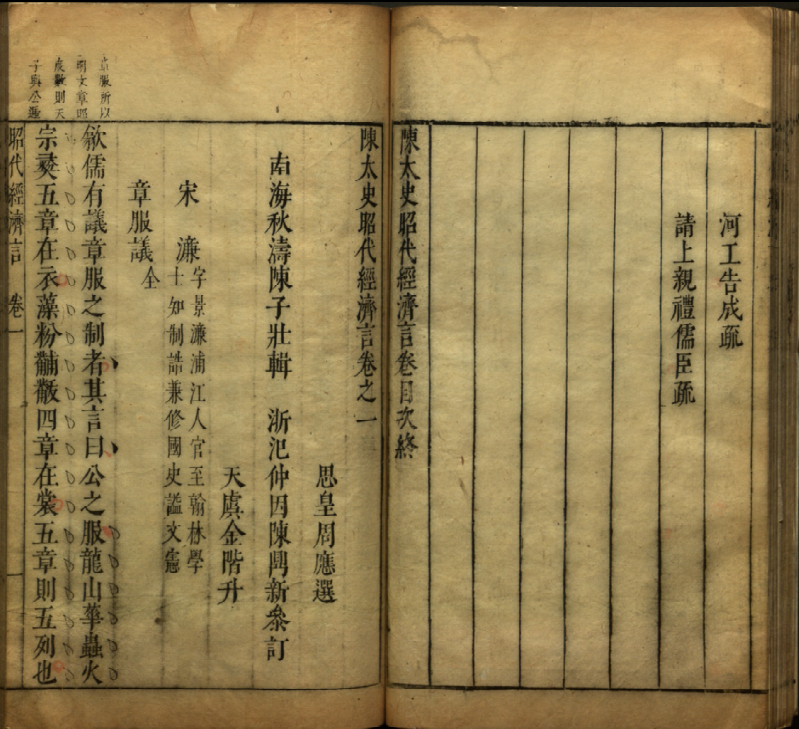 河工告成疏
請上親禮儒臣疏
陳太史昭代經濟言卷目次終
陳太史昭代經濟言卷之一
思皇周應選
南海秋濤陳子壯輯 浙汜仲因陳 新叅訂
天虞金階升
宋濂 字景濂浦江人官至翰林學
士知制誥兼修國史謚文憲
章服議 全
歙儒有議章服之制者其言曰公之服龍山華蟲火
宗彝五章在衣藻粉黼黻四章在裳五章則五列也
昭代經濟言 卷一 一
所以
明文章
則天
子與公